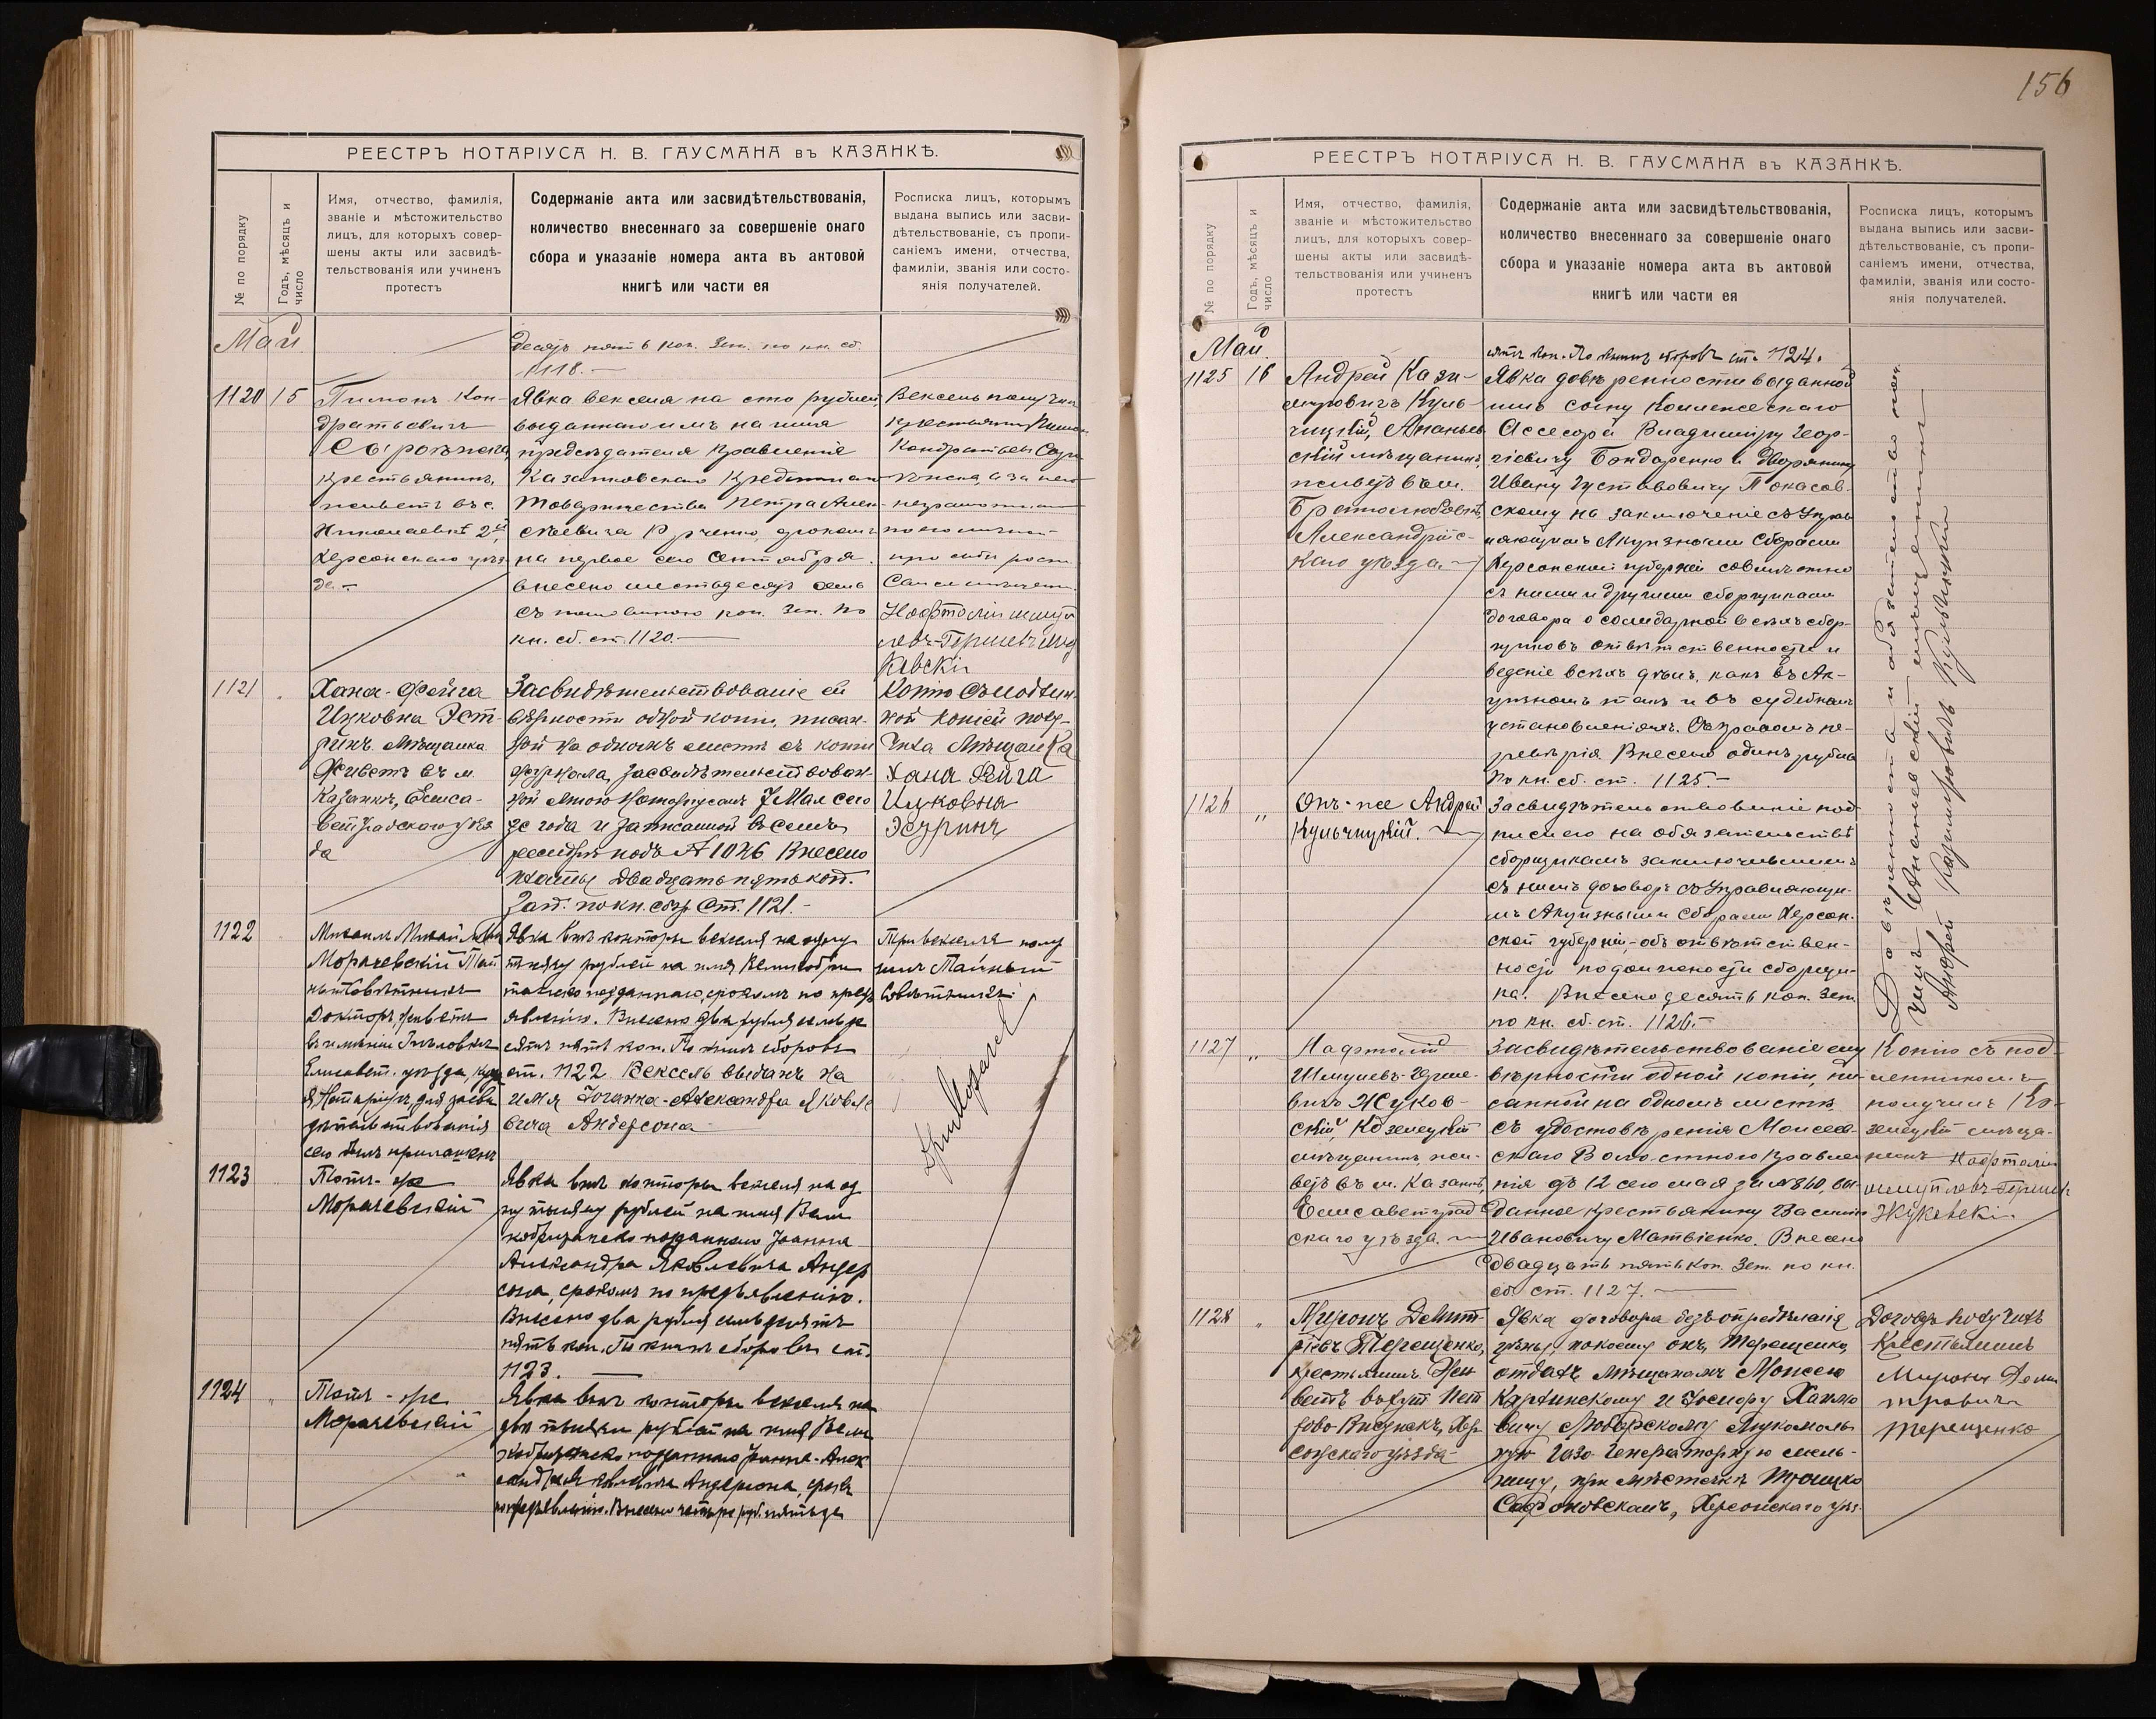 РЕЕСТРЪ НОТАРІУСА Н. В. ГАУСМАНА въ КАЗАНКѢ.
№ по порядку
Годъ, мѣсяцъ и
число
Имя, отчество, фамилія,
званіе и мѣстожительство
лицъ, для которыхъ совер-
шены акты или засвидѣ-
тельствованія или учиненъ
протестъ
Содержаніе акта или засвидѣтельствованія,
количество внесеннаго за совершеніе онаго
сбора и указаніе номера акта въ актовой
книгѣ или части ея
Росписка лицъ, которымъ
выдана выпись или засви-
дѣтельствованіе, съ пропи-
саніемъ имени, отчества,
фамиліи, званія или состо-
янія получателей.
Май
десять пять коп. Зап. по кн. сб.
1118.
1120 15
Кон-
дратьевичъ
крестьянинъ,
живетъ въ с.
Николаевкѣ 2й,
Херсонскаго уѣз-
да.
Явка векселя на сто рублей,
выданнаго имъ на имя
предсѣдателя Правленія
Казанковскаго Кредитнаго
Товарищества Петра Алек-
сѣевича срокомъ
на первое сего Сентября.
внесено шестьдесятъ семь
съ половиною коп. Зап. по
кн. сб. ст. 1120.
Вексель получилъ
крестьянинъ
Кондратьевъ
а за него
неграмотнаго
по его личной
просьбѣ росп.
Нафтолій Шмуй
левъ-Гершевъ Жу
ковскій
1121
Хана-Фейга
Ицковна Эст-
ринъ, мѣщанка
Живетъ въ м.
Казанкѣ, Елиса-
ветградскаго уѣз
да
Засвидѣтельствованіе ей
вѣрности одной копіи, писан-
ной на одномъ листѣ съ копіи
журнала, засвидѣтельствован-
ной мною Нотаріусомъ 7 Мая сего
же года и записанной въ семъ
реестрѣ подъ № 1046. Внесено
платы двадцать пять коп.
Зап. по кн. сбор. Ст. 1121.
Копію съ подлин
ной копіей полу-
чила Мѣщанка
Хана Фейга
Ицковна
Эстринъ
1122
Михаилъ Михайловичъ
Морачевскій Тай
ный Совѣтникъ
Докторъ, живетъ
въ имѣніи
Елисавет. уѣзда, куда
я Нотаріусъ для засви
дѣтельствованія
сего былъ приглашенъ
Явка внѣ конторы векселя на одну
тысячу рублей на имя Великобри
танско подданнаго, срокомъ по предъ
явленію. Внесено два рубля семьде
сятъ пять коп. По книгѣ сборовъ
ст. 1122. Вексель выданъ на
имя Іоганна-Александра Яковле
вича Андерсона
Три векселя полу
чилъ Тайный
Совѣтникъ
1123
Тотъ-же
Морачевскій
Явка внѣ конторы векселя на од
ну тысячу рублей на имя Вели
кобританско подданнаго Іоанна
Александра Яковлевича Андер
сона, срокомъ по предъявленію.
Внесено два рубля семьдесятъ
пять коп. По книгѣ сборовъ ст.
1123.
1124 "
Тотъ-же
Морачевскій
Явка внѣ конторы векселя на
двѣ тысячи рублей на имя Вели
кобританско подданнаго Іоанна-Алек
сандра Яковлевича Андерсона, срокъ
предъявленію. Внесено четыре руб. пятьде
156
РЕЕСТРЪ НОТАРІУСА Н. В. ГАУСМАНА въ КАЗАНКѢ.
№ по порядку
Годъ, мѣсяцъ и
число
Имя, отчество, фамилія,
званіе и мѣстожительство
лицъ, для которыхъ совер-
шены акты или засвидѣ-
тельствованія или учиненъ
протестъ
Содержаніе акта или засвидѣтельствованія,
количество внесеннаго за совершеніе онаго
сбора и указаніе номера акта въ актовой
книгѣ или части ея
Росписка лицъ, которымъ
выдана выпись или засви-
дѣтельствованіе, съ пропи-
саніемъ имени, отчества,
фамиліи, званія или состо-
янія получателей.
Май
сятъ коп. По книгѣ сборовъ ст. 1124.
1125 16
Андрей Кази-
міровичъ Куль-
чицкій, Ананьев
скій мѣщанинъ,
живетъ въ м.
Братолюбовкѣ,
Александрійс-
каго уѣзда.
Явка довѣренности выданной
имъ сыну Коллежскаго
Ассесора Владиміру Геор-
гіевичу Бондаренко и дворянину
Ивану Густавовичу
скому на заключеніе съ Управ
ляющимъ Акцизными Сборами
Херсонской губерніи совмѣстно
съ ними и другими сборщиками
договора о солидарной всѣхъ сбор-
щиковъ отвѣтственности и
веденіе всѣхъ дѣлъ, какъ въ Ак-
цизномъ такъ и въ судебномъ
установленіяхъ. Съ правомъ пе-
редовѣрія. Внесено одинъ рубль
По кн. сб. ст. 1125.
Довѣренность и обязательство полу-
чилъ Ананьевскій мѣщанинъ
Андрей Казиміровичъ Кульчицкій
1126 "
Онъ-же Андрей
Кульчицкій.
Засвидѣтельствованіе под-
писи его на обязательствѣ
сборщикамъ заключившимъ
съ нимъ договоръ съ Управляющи-
мъ Акцизными Сборами Херсон-
ской губерніи, объ отвѣтствен-
ности по должности сборщи-
ка. Внесено десять коп. Зап.
по кн. сб. ст. 1126.
1127 "
Нафтолій
Шмулевъ-Герше-
вичъ Жуков-
скій, Козелецкій
мѣщанинъ, жи-
ветъ въ м. Казанкѣ,
Елисаветград
скаго уѣзда.
Засвидѣтельствованіе ему
вѣрности одной копіи, пи-
санной на одномъ листѣ
съ удостовѣренія Моисеев-
скаго Волостного Правле
нія отъ 12 сего мая за № 860, вы-
данное крестьянину Василію
Ивановичу Матвіенко. Внесено
двадцать пять коп. Зап. по кн.
сб. ст. 1127.
Копію съ под-
линникомъ
получилъ Ко-
зелецкій мѣща-
нинъ Нафтолій
Шмулевъ-Гершев
Жуковскі
1128 "
Миронъ Дмит-
ріевъ Терещенко,
крестьянинъ Жи
ветъ въ хут. Пет
рово-Висунскъ, Хер-
сонскаго уѣзда
Явка договора безъ опредѣленія
цѣны, по коему онъ, Терещенко,
отдалъ мѣщанамъ Моисею
и Іосифу
вичу мукомоль
ную газо-генераторную мель-
ницу, при мѣстечкѣ Троицко
Сафоновскомъ, Херсонскаго уѣз-
Договоръ получилъ
Крестьянинъ
Миронъ Дми
тровичъ
Терещенко